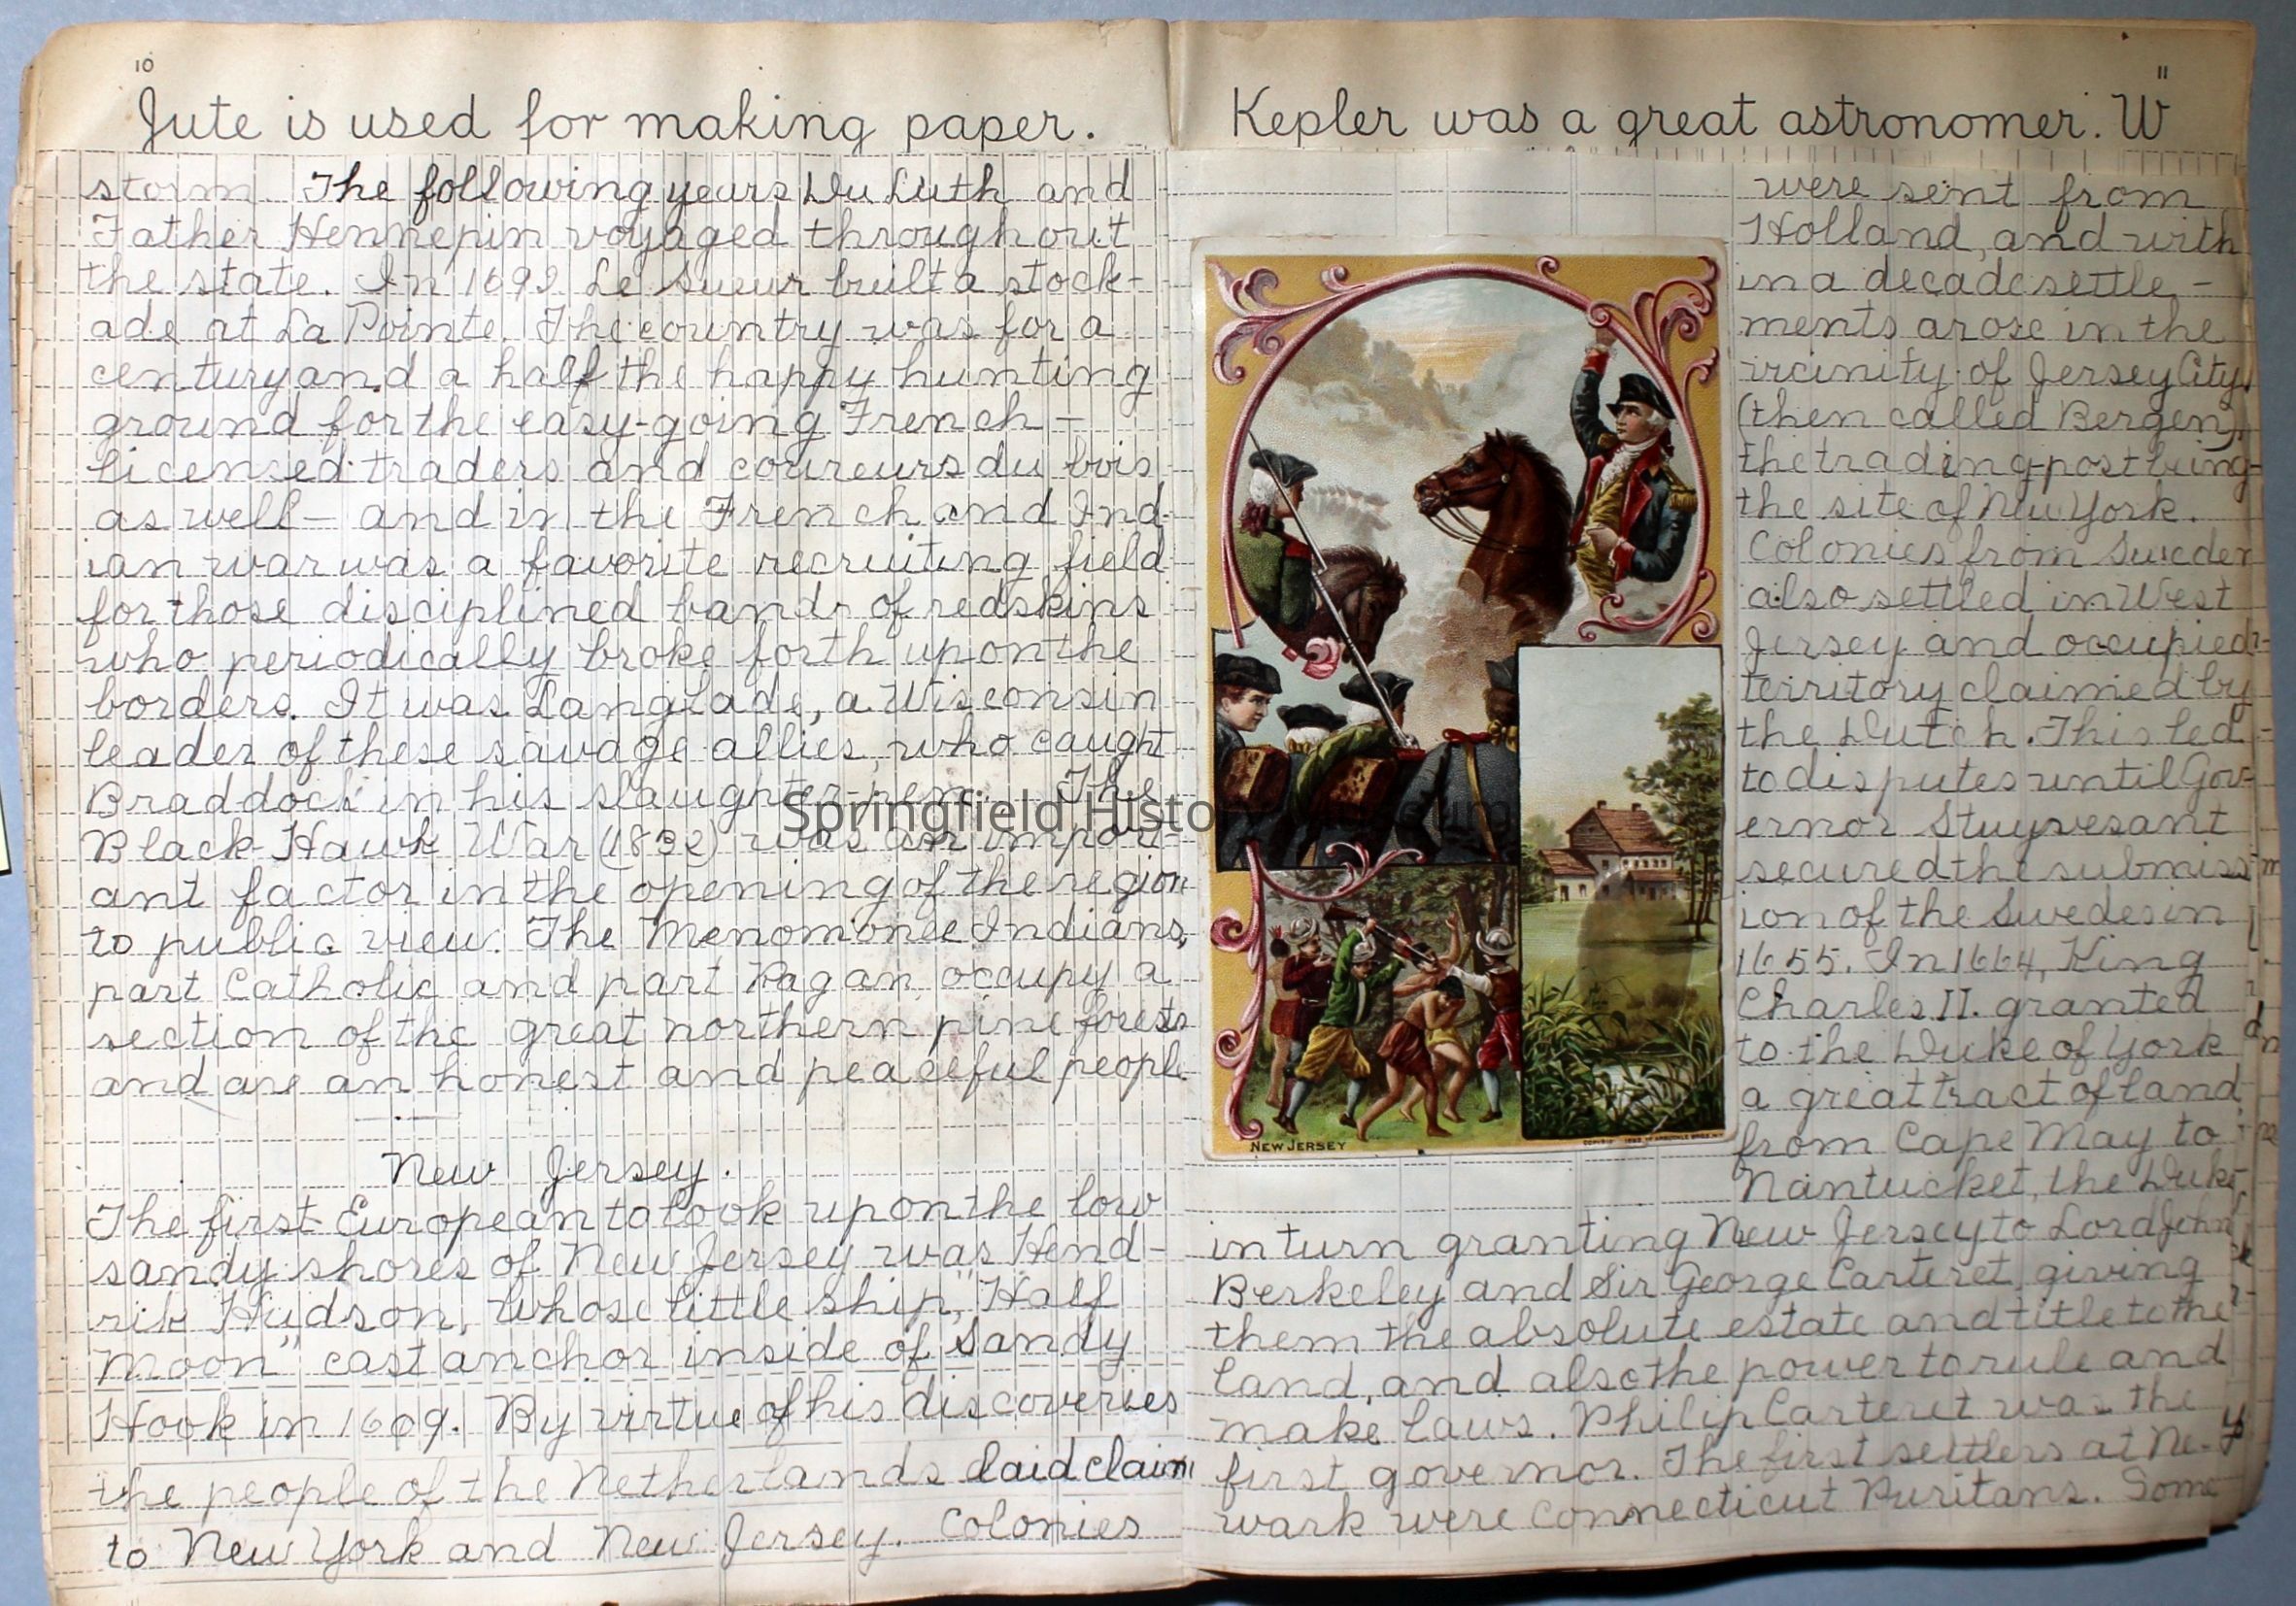 10
Jute is used for making paper.
storm The following years Du Luth and
Father Hennepin voyaged throughout
the state. In 1692 Le Sueur built a stock-
ade at La Pointe. The country was for a
century and a half the happy hunting
ground for the easy-going French -
licensed traders and coureurs du bois
as well - and in the French and Ind-
ian war was a favorite recruiting field
for those disciplined bands of redskins
who periodically broke forth upon the
borders. It was Langlade, a Wisconsin
leader of these savage allies, who caught
Braddock in his slaughter-pen. The
Black Hawk War (1832) was an import-
ant factor in the opening of the region
to public view. The Menomonee Indians,
part Catholic and part Pagan, occupy a
section of the great northern pine forests
and are an honest and peaceful people
New Jersey.
The first European to look upon the low
sandy shores of New Jersey was Hend-
rik Hudson, whose little ship, "Half
Moon" cast anchor inside of Sandy
Hook in 1609. By virtue of his discoveries
the people of the Netherlands laid claim
to New York and New Jersey. Colonies
11
Kepler was a great astronomer. W
were sent from
Holland, and with
in a decade settle -
ments arose in the
vicinity of Jersey City
(then called Bergen)
the trading-post being
the site of New York.
Colonies from Sweden
also settled in West
Jersey and occupied
territory claimed by
the Dutch. This led
to disputes until Gov-
ernor Stuyvesant
secured the submiss
ion of the Swedes in
1655. In 1664, King
Charles II. granted
to the Duke of York
a great tract of land
from Cape May to
Nantucket, the Duke
in turn granting New Jersey to Lord John
Berkeley and Sir George Carteret, giving
them the absolute estate and title to the
land, and also the power to rule and
make laws. Philip Carteret was the
first governor. The first settlers at Ne-
wark were Connecticut Puritans. Some
NEW JERSEY
Springfield History Museum